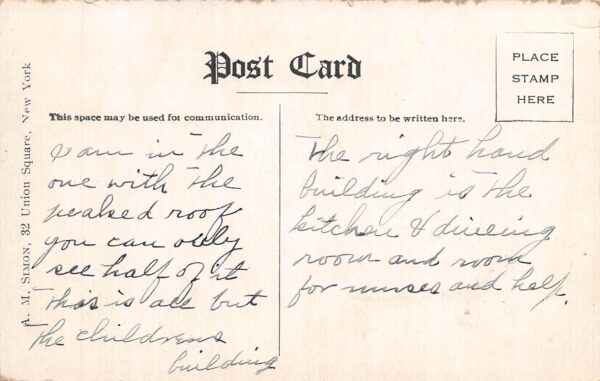 Post Card
PLACE
STAMP
HERE
This space may be used for communication.
The address to be written here.
A. M. SIMON, 32 Union Square, New York
I am in the
one with the
peaked roof
you can only
see half of it
this is all but
the childrens
building
The right hand
building is the
kitchen & dineing
room and room
for nurses and help.